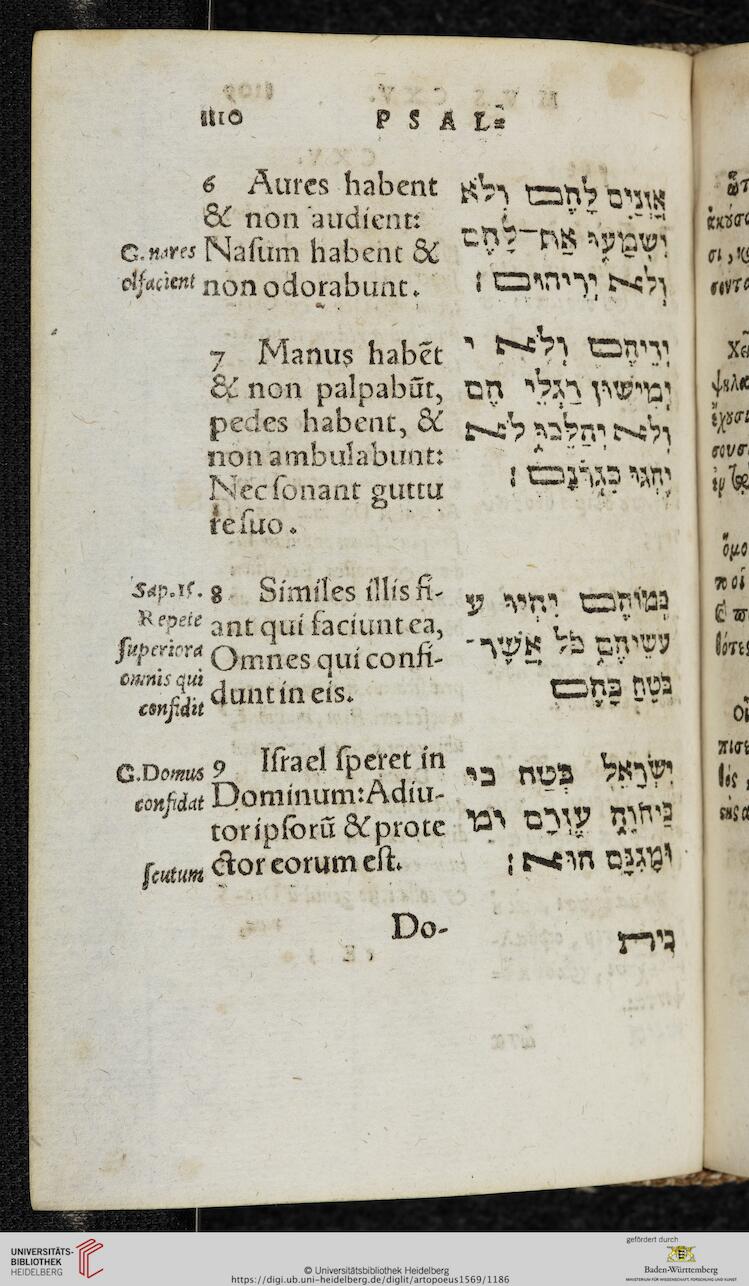 1110
PSAL=
6 Aures habent
& non audient:
G. nares Nasum habent &
olfacient non odorabunt.
אָזְנַיִם לָהֶם וְלֹא
יִשְׁמָעוּ אַף־לָהֶם
וְלֹא יְרִיחוּן׃
7 Manus habēt
& non palpabūt,
pedes habent, &
non ambulabunt:
Nec sonant guttu
re suo.
יְדֵיהֶם וְלֹא י
יְמִישׁוּן רַגְלֵיהֶם
וְלֹא יְהַלֵּכוּ לֹא
יֶהְגּוּ בִּגְרוֹנָם׃
Sap. 15. 8 Similes illis fi-
Repete ant qui faciunt ea,
superiora Omnes qui confi-
omnis qui dunt in eis.
confidit
כְּמוֹהֶם יִהְיוּ ע
עֹשֵׂיהֶם כֹּל אֲשֶׁר־
בֹּטֵחַ בָּהֶם
G. Domus 9 Israel speret in
confidat Dominum: Adiu-
tor ipsorū & prote
scutum ctor eorum est.
יִשְׂרָאֵל בְּטַח בי
בַּיהֹוָה עֶזְרָם ומ
וּמָגִנָּם הוּא׃
Do-
בית
UNIVERSITÄTS-
BIBLIOTHEK
HEIDELBERG
© Universitätsbibliothek Heidelberg
https://digi.ub.uni-heidelberg.de/diglit/artopoeus1569/1186
gefördert durch
Baden-Württemberg
MINISTERIUM FÜR WISSENSCHAFT, FORSCHUNG UND KUNST